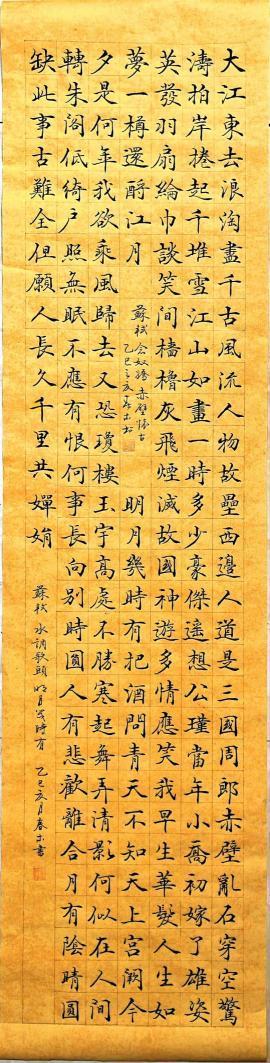 大江東去浪淘盡千古風流人物故壘西邊人道是三國周郎赤壁亂石穿空驚
濤拍岸捲起千堆雪江山如畫一時多少豪傑遙想公瑾當年小喬初嫁了雄姿
英發羽扇綸巾談笑間檣櫓灰飛煙滅故國神遊多情應笑我早生華髮人生如
夢一樽還酹江月
蘇軾念奴嬌赤壁懷古
明月幾時有把酒問青天不知天上宮闕今
夕是何年我欲乘風歸去又恐瓊樓玉宇高處不勝寒起舞弄清影何似在人間
轉朱閣低綺戶照無眠不應有恨何事長向別時圓人有悲歡離合月有陰晴圓
缺此事古難全但願人長久千里共嬋娟
蘇軾 水調歌頭 明月幾時有 乙巳亥月春木書